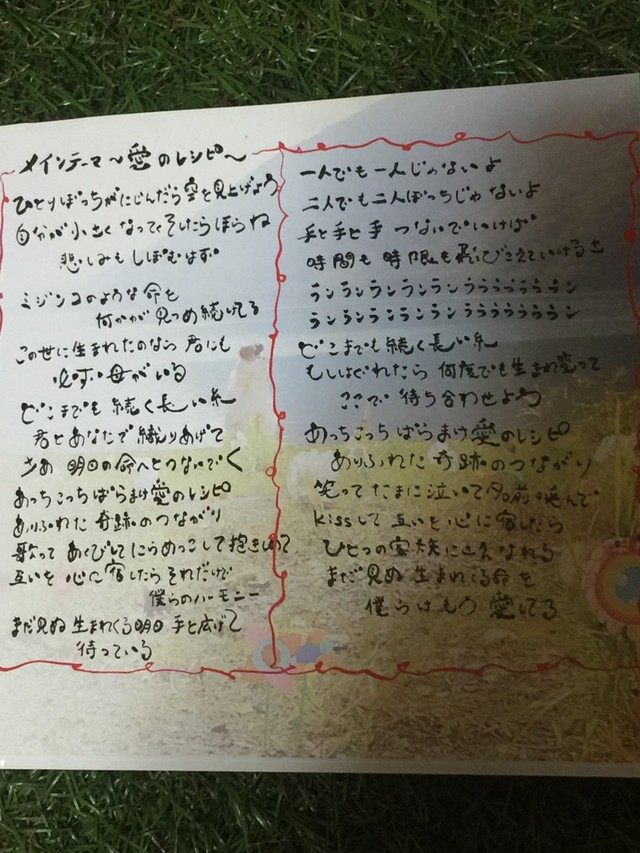 メインテーマ〜愛のレシピ〜
ひとりぼっちがにじんだら空を見上げよう
自分が小さくなってそしたらほらね
悲しみもしぼむはず
ミジンコのような命を
何かが見つめ続けてる
この世に生まれたのなら君にも
必ず母がいる
どこまでも続く長い糸
君とあなたで織りあげて
さあ明日の命へとつないでく
あっちこっちばらまけ愛のレシピ
ありふれた奇跡のつながり
歌ってあくびしてにらめっこして抱きしめて
互いを心に宿したらそれだけで
僕らのハーモニー
まだ見ぬ生まれくる明日手を広げて
待っている
一人でも一人じゃないよ
二人でも二人ぼっちじゃないよ
手と手と手つないでいけば
時間も時限も飛びこえていけるさ
ランランランランランララララララン
ランランランランランララララララン
どこまでも続く長い糸
もしはぐれたら何度でも生まれ変って
ここで待ち合わせよう
あっちこっちばらまけ愛のレシピ
ありふれた奇跡のつながり
笑ってたまに泣いて名前呼んで
kissして互いを心に宿したら
ひとつの家族になれる
まだ見ぬ生まれくる命を
僕らはもう愛してる